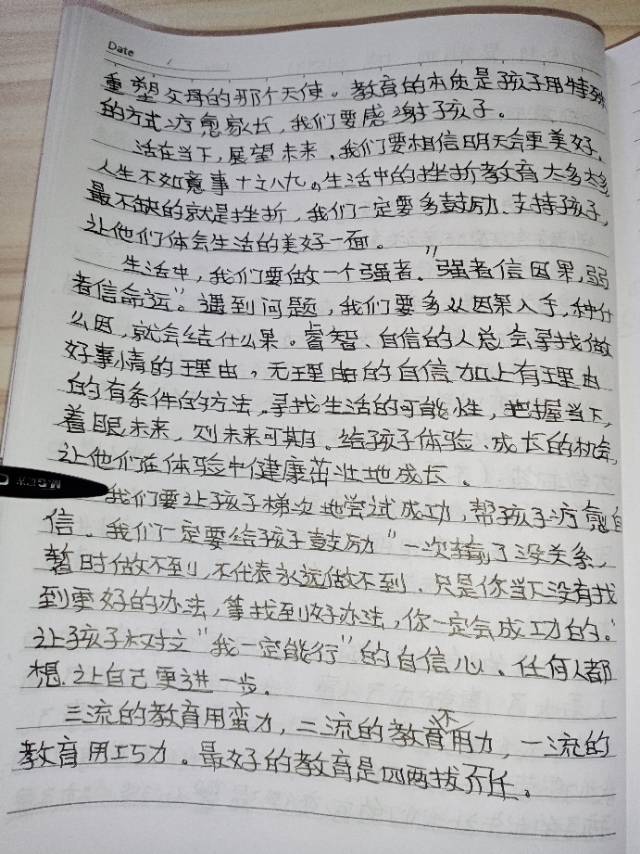 Date
重塑父母的那个天使。教育的本质是孩子用特殊
的方式疗愈家长,我们要感谢孩子。
活在当下,展望未来,我们要相信明天会更美好,
人生不如意事十之八九。生活中的挫折教育太多太多
最不缺的就是挫折,我们一定要多鼓励、支持孩子,
让他们体会生活的美好一面。
生活中,我们要做一个强者。"强者信因果,弱
者信命运"。遇到问题,我们要多从因果入手,种什
么因,就会结什么果。睿智、自信的人总会寻找做
好事情的理由,无理由的自信加上有理由
的有条件的方法,寻找生活的可能性,把握当下,
着眼未来,则未来可期。给孩子体验、成长的机会,
让他们在体验中健康茁壮地成长。
我们要让孩子梯次地尝试成功,帮孩子疗愈自
信。我们一定要给孩子鼓励"一次输了没关系,
暂时做不到,不代表永远做不到.只是你当下没有找
到更好的办法,等找到好办法,你一定会成功的。"
让孩子树立"我一定能行"的自信心、任何人都
想让自己更进一步。
三流的教育用蛮力,二流的教育不用力,一流的
教育用巧力。最好的教育是四两拔千斤。